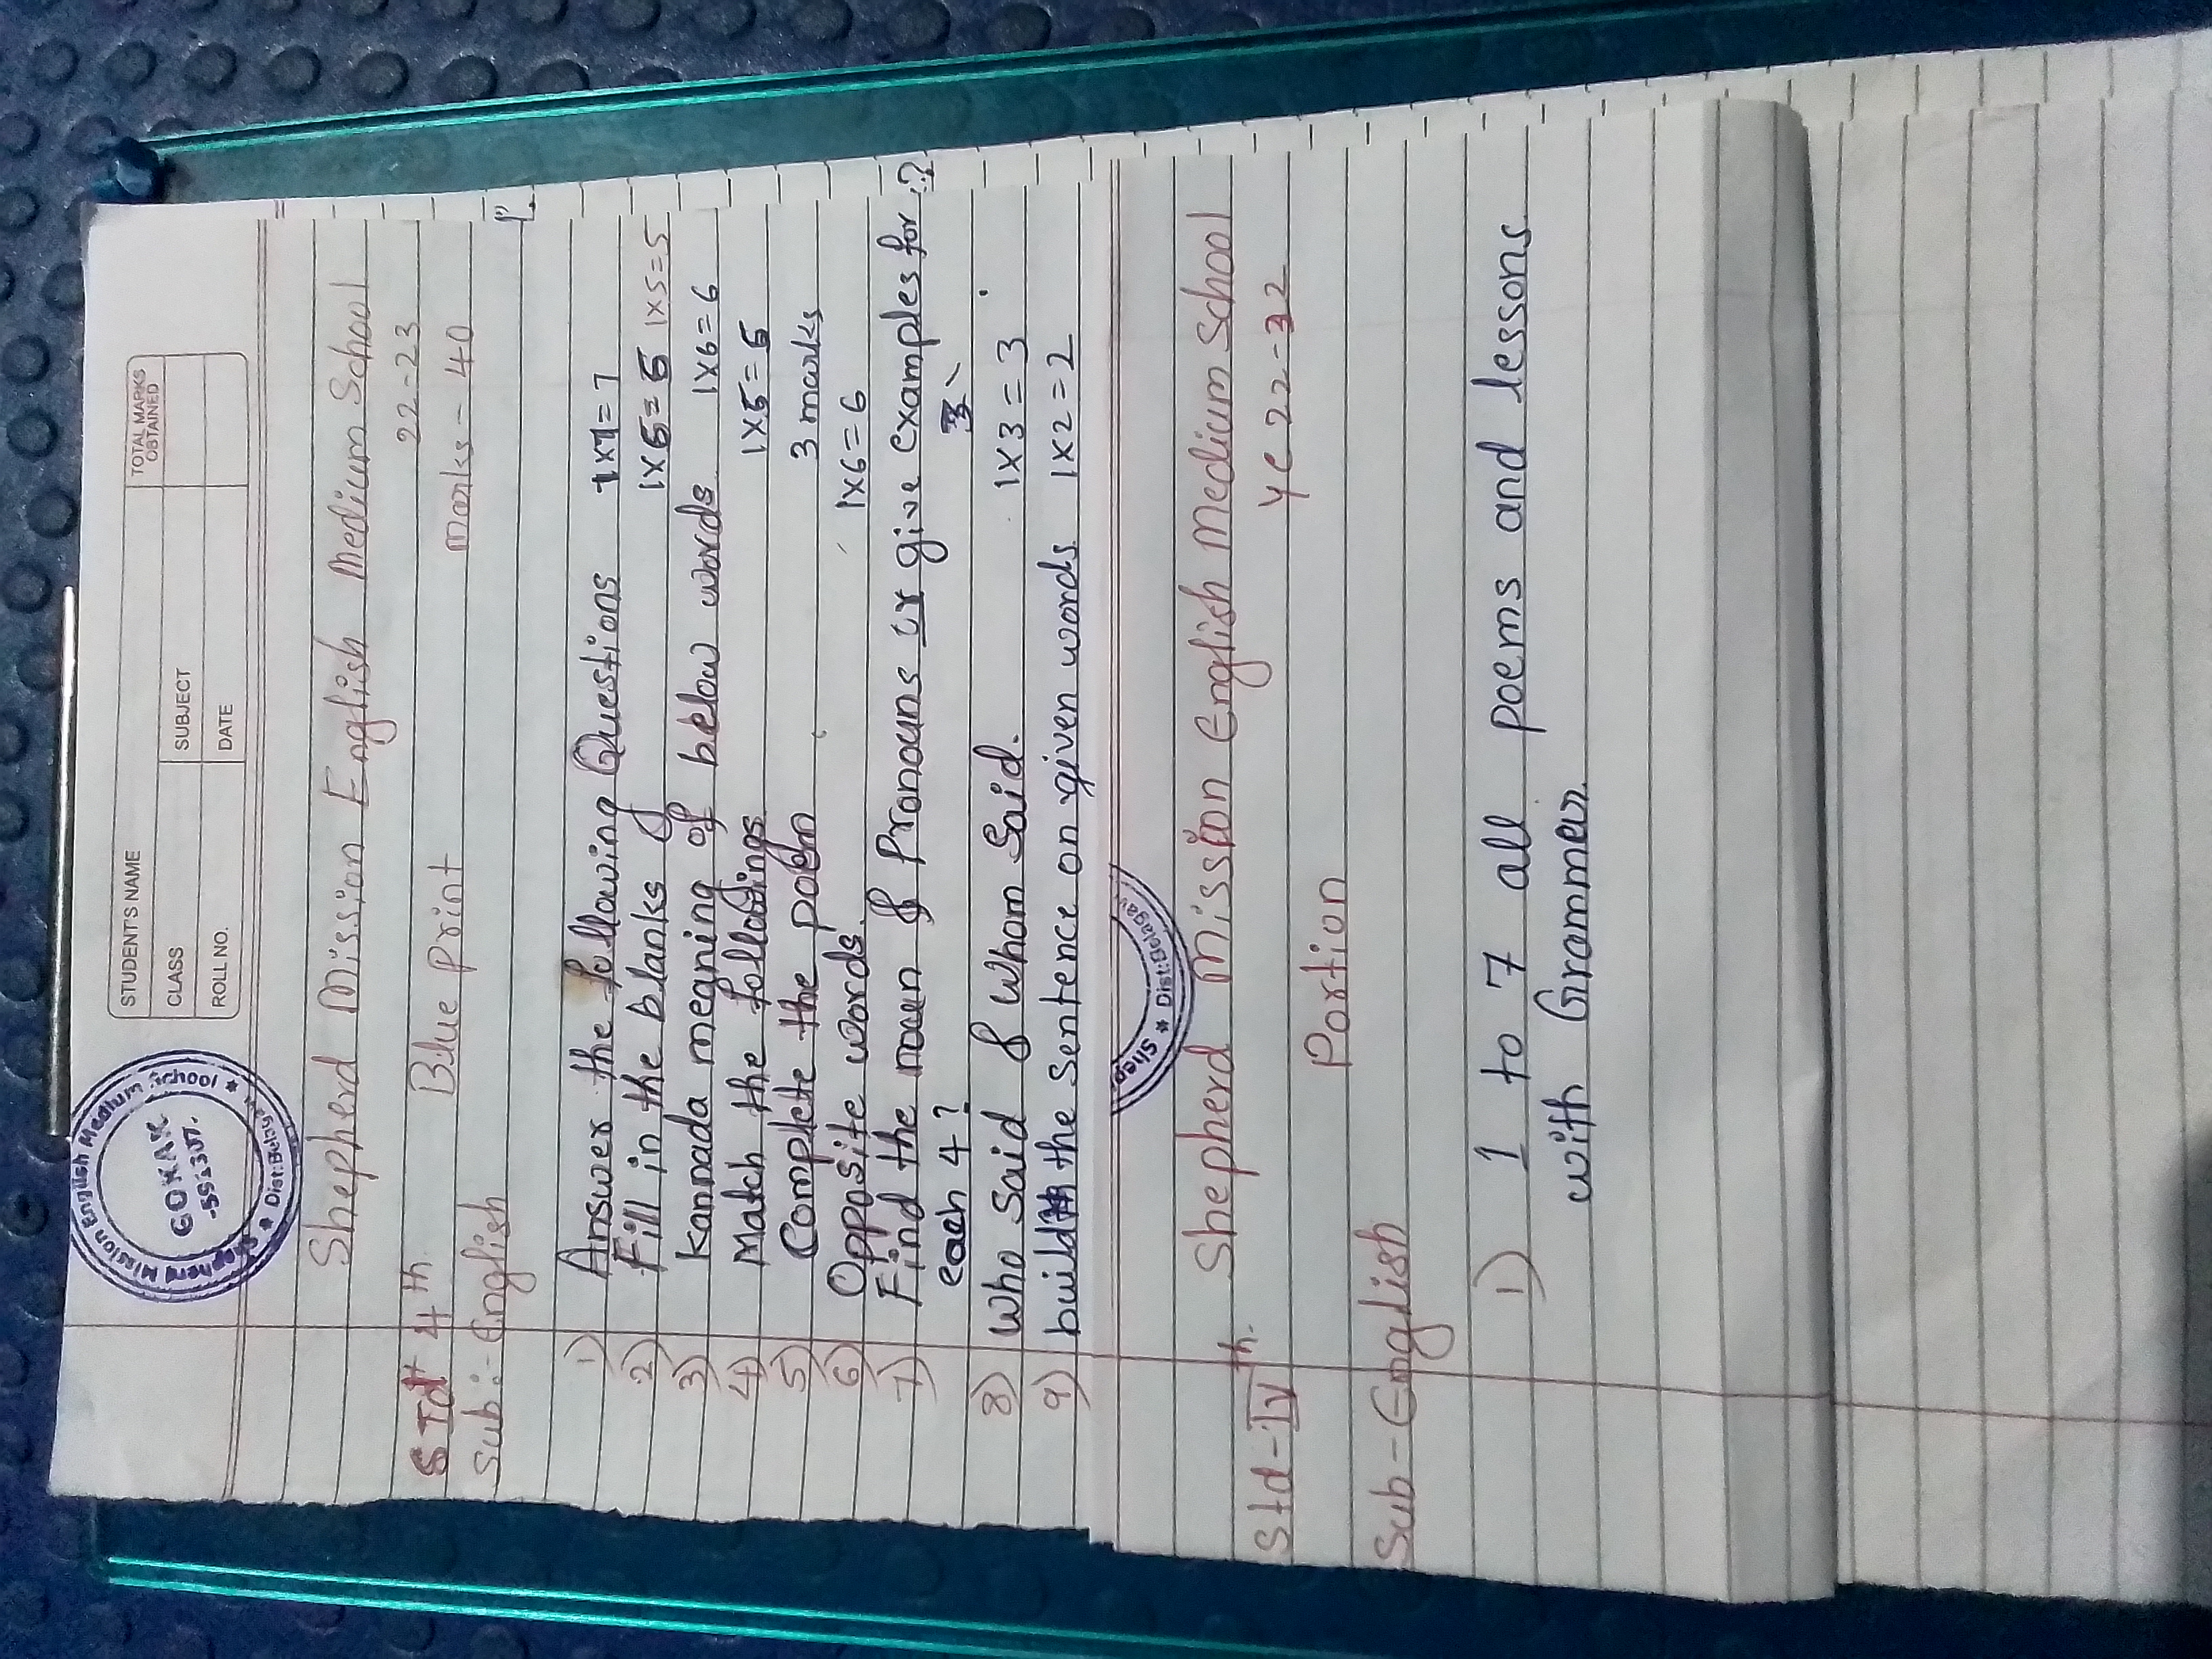 STUDENT'S NAME
TOTAL MARKS OBTAINED
CLASS
SUBJECT
ROLL NO.
DATE
Shepherd Mission English Medium School
GOKAK
Dist:Belagavi
Shepherd Mission English Medium School
22-23
STd 4th Blue Print
Sub:- English marks - 40
1) Answer the following Questions 1x7=7
2) Fill in the blanks 1x5=5 1x5=5
3) Kannada meaning of below words 1x6=6
4) Match the followings 1x5=5
5) Complete the poem 3 marks
6) Opposite words 1x6=6
7) Find the noun & Pronouns or give examples for
each 4? 3
8) Who Said & Whom Said. 1x3=3
9) build the Sentence on given words 1x2=2
Shep
Dist:Belagavi
Shepherd Mission English Medium School
Std-IVth.
Portion
Sub-English
1) 1 to 7 all poems and lessons
with Grammer.